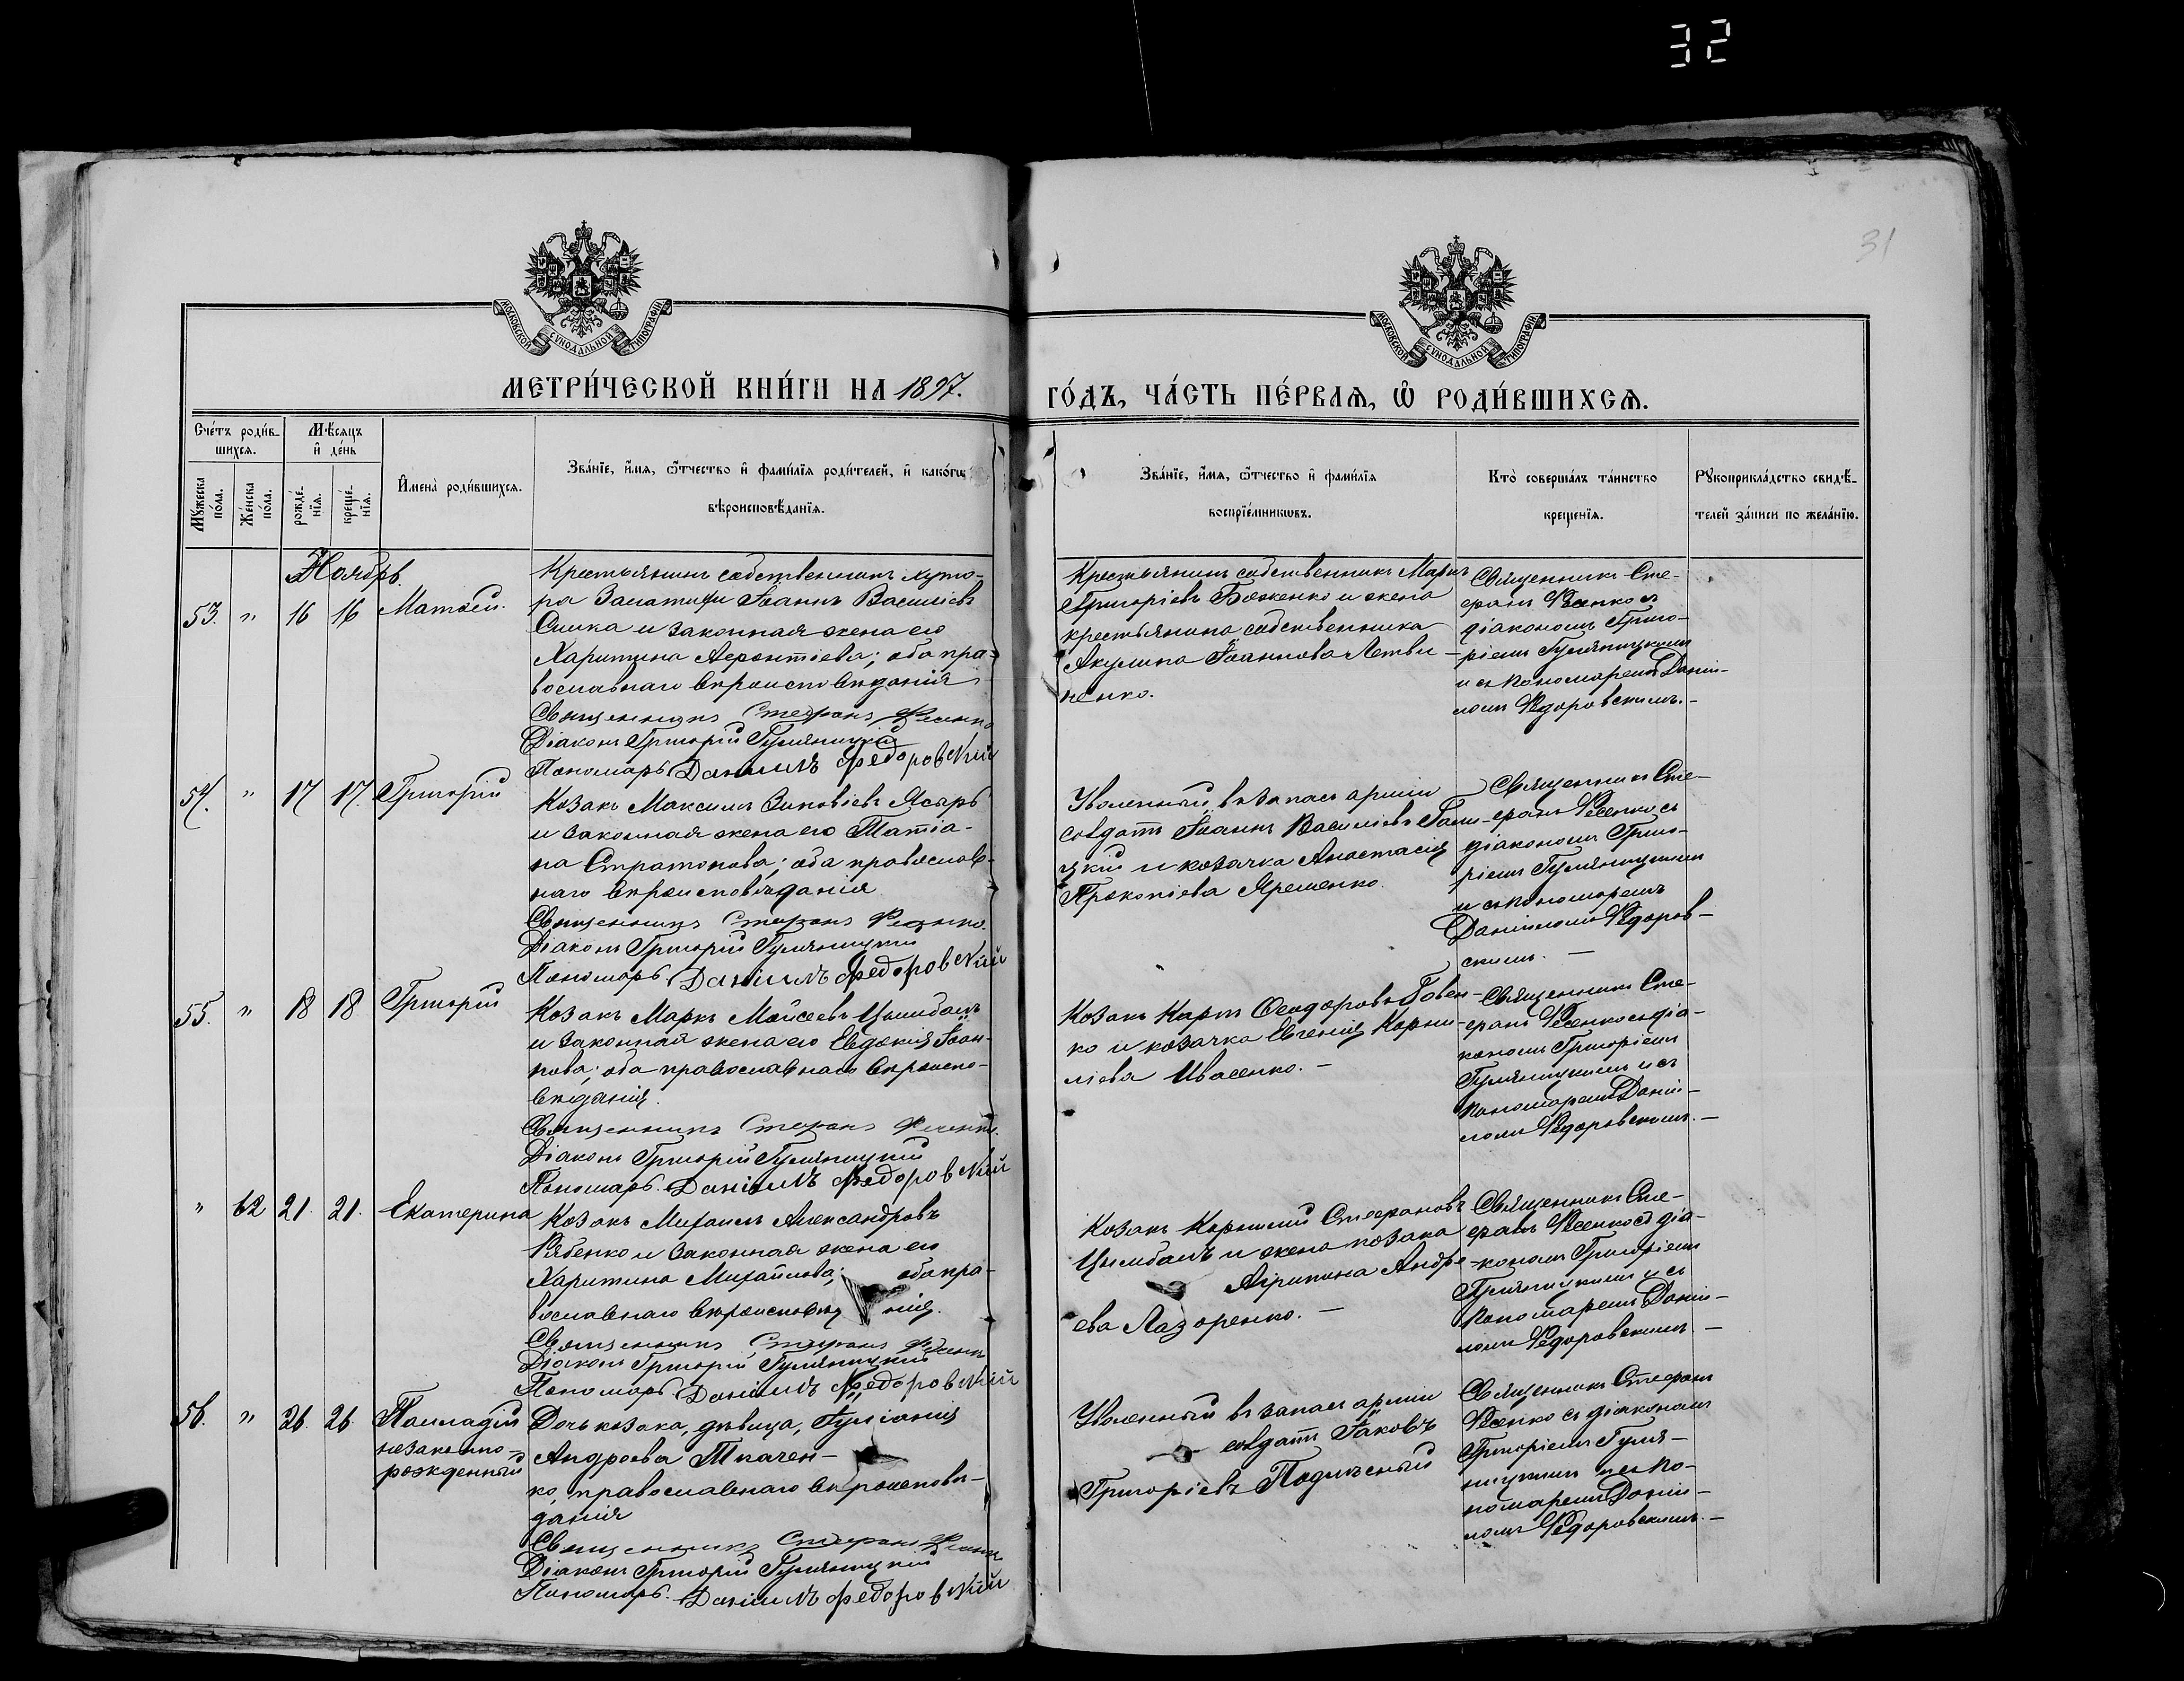 32
31
МОСКОВСКОЙ СѴНОДАЛЬНОЙ ТИПОГРАФІИ
МОСКОВСКОЙ СѴНОДАЛЬНОЙ ТИПОГРАФІИ
МЕТРИ́ЧЕСКОЙ КНИ́ГИ НА 1897.
ГО́ДЪ, ЧА́СТЬ ПЕ́РВАѦ, Ѡ҆ РОДИ́ВШИХСѦ.
Сче́тъ роди́в-
шихсѧ.
Мѣ́сѧцъ
и҆ де́нь
Мꙋ́жеска
по́ла.
Же́нска
по́ла.
рожде́-
нїѧ.
креще́-
нїѧ.
И҆мена̀ роди́вшихсѧ.
Зва́нїе, и҆́мѧ, ѻ҆́тчество и҆ фами́лїѧ роди́телей, и҆ како́гѡ
вѣроисповѣ́данїѧ.
Зва́нїе, и҆́мѧ, ѻ҆́тчество и҆ фами́лїѧ
воспрїе́мникѡвъ.
Кто̀ соверша́лъ та́инство
креще́нїѧ.
Рꙋкоприкла́дство свидѣ́-
телей за́писи по жела́нїю.
Ноябрь.
53. " 16 16 Матѳій.
Крестьянинъ собственникъ хуто-
ра Іоаннъ Василіевъ
и законная жена его
Харитина Леонтіева; оба пра-
вославнаго вѣроисповѣданія
Священникъ Стефанъ Ѳесенко
Діаконъ Григорій Гуляницкій
Пономарь Даніилъ Федоровскій
Крестьянинъ собственникъ Маркъ
Григоріевъ Боженко и жена
крестьянина собственника
Акулина Іоаннова Летви-
ненко.
Священникъ Сте-
фанъ Ѳесенко съ
діакономъ Григо-
ріемъ Гуляницкимъ
и съ пономаремъ Дании-
ломъ Ѳедоровскимъ.-
54. " 17 17. Григорій
Козакъ Максимъ Зиновіевъ Ясыръ
и законная жена его Татіа-
на Стратонова; оба православ-
наго вѣроисповѣданія
Священникъ Стефанъ Ѳесенко.
Діаконъ Григорій Гуляницкій
Пономарь Даніилъ Федоровскій
Уволенный въ запасъ арміи
солдатъ Іоаннъ Василіевъ Гали-
цкій и козачка Анастасія
Прокопіева Яременко.
Священникъ Сте-
фанъ Ѳесенко съ
діакономъ Григо-
ріемъ Гуляницкимъ
и съ пономаремъ
Даніиломъ Ѳедоров-
скимъ. -
55. " 18 18 Григорій
Козакъ Маркъ Мойсеевъ Цымбалъ
и законная жена его Евдокія Іоан-
нова; оба православнаго вѣроиспо-
вѣданія.
Священникъ Стефанъ Ѳесенко.
Діаконъ Григорій Гуляницкій
Пономарь. Даніилъ Федоровскій
Козакъ Карпъ Ѳеодоровъ Говен-
ко и козачка Евгенія Корни-
ліева Ивасенко. -
Священникъ Сте-
фанъ Ѳесенко съ діа-
кономъ Григоріемъ
Гуляницкимъ и съ
пономаремъ Даніи-
ломъ Ѳедоровскимъ. -
" 62 21. 21. Екатерина
Козакъ Михаилъ Александровъ
Рябенко и законная жена его
Харитина Михайлова; оба пра-
вославнаго вѣроисповѣд нія.
Священникъ Стефанъ Ѳесенко
Діаконъ Григорій Гуляницкій
Пономарь. Даніилъ Федоровскій
Козакъ Корнилій Стефановъ
Цымбалъ и жена козака
Агрипина Андре-
ева Лазоренко. -
Священникъ Сте-
фанъ Ѳесенко съ діа-
кономъ Григоріемъ
Гуляницкимъ и съ
пономаремъ Даніи-
ломъ Ѳедоровскимъ. -
56. " 26. 26. Палладій
незаконно-
рожденный
Дочь козака, дѣвица, Іуліанія
Андреева Ткачен-
ко, православнаго вѣроисповѣ-
данія
Священникъ Стефанъ Ѳесенко
Діаконъ Григорій Гуляницкій
Пономарь. Даніилъ Федоровскій
Уволенный въ запасъ арміи
солдатъ Іаковъ
Григоріевъ Подлѣсный
Священникъ Стефанъ
Ѳесенко съ діакономъ
Григоріемъ Гуля-
ницкимъ и съ по-
номаремъ Даніи-
ломъ Ѳедоровскимъ. -